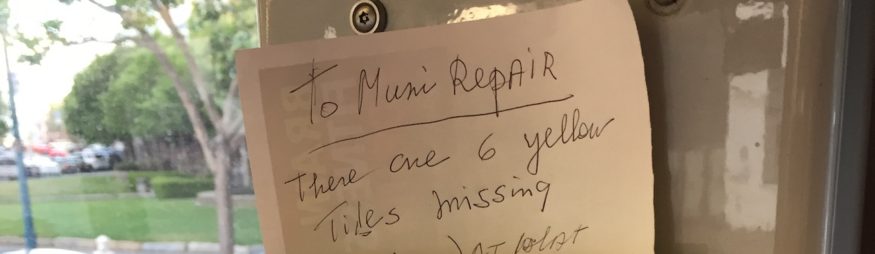 To Muni RepAIR
There are 6 yellow
Tiles missing